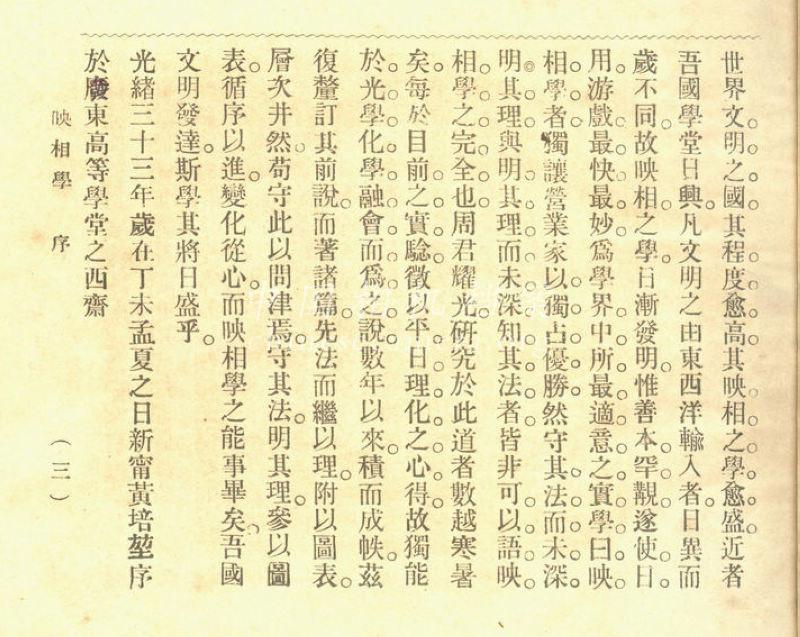 世界文明之國。其程度愈高。其映相之學愈盛。近者
吾國學堂日興。凡文明之由東西洋輸入者。日異而
歲不同。故映相之學。日漸發明。惟善本罕覯。遂使日
用游戲最快最妙爲學界中所最適意之實學曰映
相學者。獨讓營業家以獨占優勝。然守其法而未深
明其理。與明其理而未深知其法者。皆非可以語映
相學之完全也。周君耀光。研究於此道者數越寒暑
矣。每於目前之實驗。徵以平日理化之心得。故獨能
於光學化學。融會而爲之說。數年以來。積而成帙。茲
復釐訂其前說。而著諸篇。先法而繼以理。附以圖表。
層次井然。苟守此以問津焉。守其法。明其理。參以圖
表。循序以進。變化從心。而映相學之能事畢矣。吾國
文明發達。斯學其將日盛乎。
光緒三十三年歲在丁未孟夏之日新甯黃培堃序
於廣東高等學堂之西齋
映相學 序 (三)